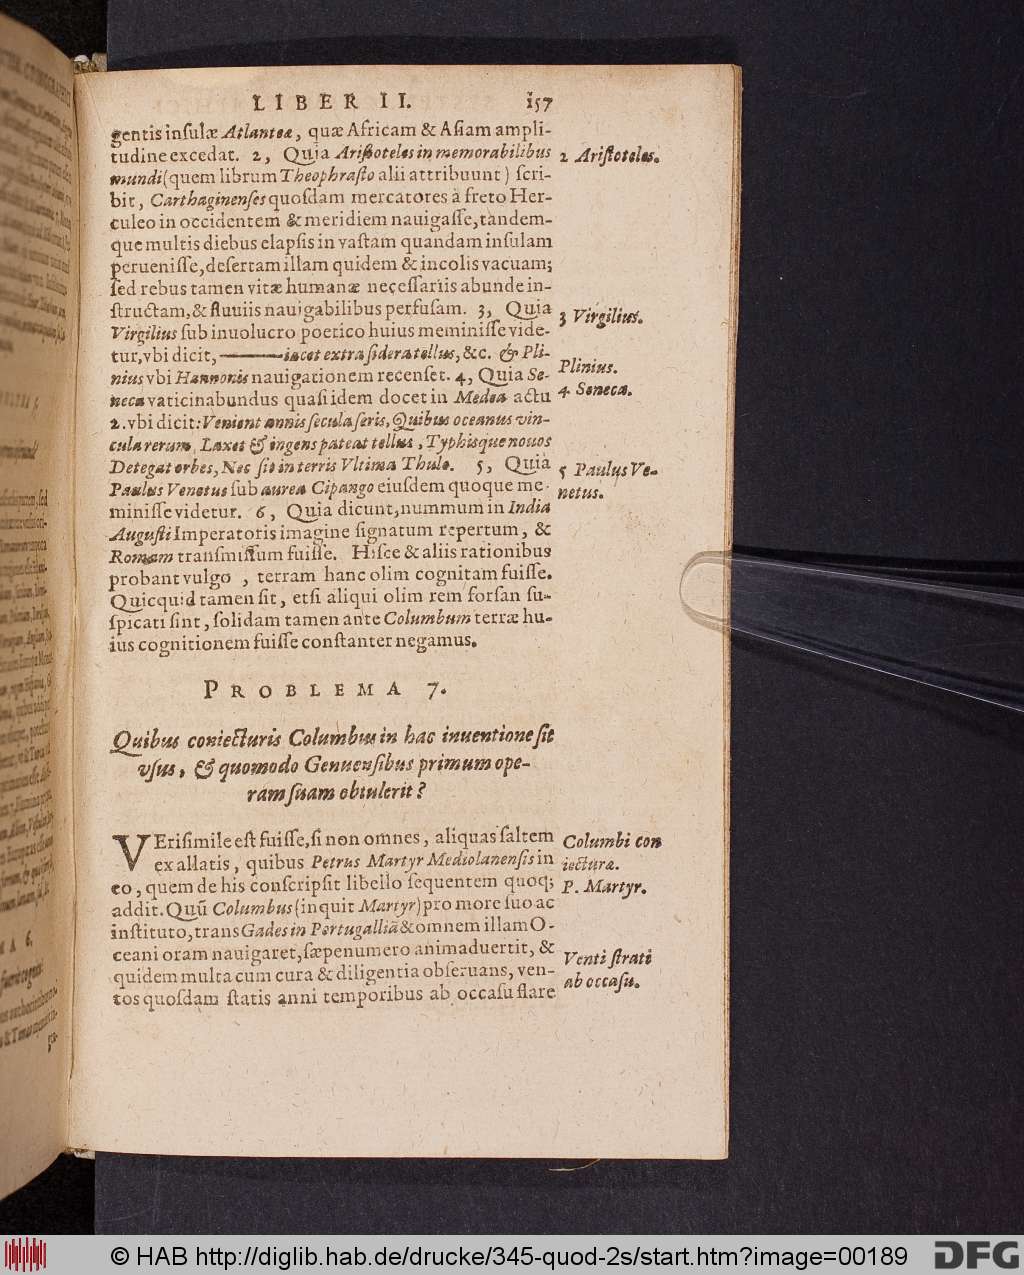 LIBER II. 157
gentis insulæ Atlantea, quæ Africam & Asiam ampli-
tudine excedat. 2, Quia Aristoteles in memorabilibus
mundi (quem librum Theophrasto alii attribuunt) scri-
bit, Carthaginenses quosdam mercatores à freto Her-
culeo in occidentem & meridiem nauigasse, tandem-
que multis diebus elapsis in vastam quandam insulam
peruenisse, desertam illam quidem & incolis vacuam;
sed rebus tamen vitæ humanæ necessariis abunde in-
structam, & fluuiis nauigabilibus perfusam. 3, Quia
Virgilius sub inuolucro poetico huius meminisse vide-
tur, vbi dicit, ——— iacet extra sidera tellus, &c. & Pli-
nius vbi Hannonis nauigationem recenset. 4, Quia Se-
neca vaticinabundus quasi idem docet in Medea actu
2. vbi dicit: Venient annis secula seris, Quibus oceanus vin-
cula rerum, Laxet & ingens pateat tellus, Typhisque nouos
Detegat orbes, Nec sit in terris Vltima Thule. 5, Quia
Paulus Venetus sub aurea Cipango eiusdem quoque me-
minisse videtur. 6, Quia dicunt, nummum in India
Augusti Imperatoris imagine signatum repertum, &
Romam transmissum fuisse. Hisce & aliis rationibus
probant vulgo, terram hanc olim cognitam fuisse.
Quicquid tamen sit, etsi aliqui olim rem forsan su-
spicati sint, solidam tamen ante Columbum terræ hu-
ius cognitionem fuisse constanter negamus.
2 Aristoteles.
3 Virgilius.
Plinius.
4. Seneca.
5 Paulus Ve-
netus.
PROBLEMA 7.
Quibus coniecturis Columbus in hac inuentione sit
vsus, & quomodo Genuensibus primum ope-
ram suam obtulerit?
VErisimile est fuisse, si non omnes, aliquas saltem
ex allatis, quibus Petrus Martyr Mediolanensis in
eo, quem de his conscripsit libello sequentem quoq;
addit. Quū Columbus (inquit Martyr) pro more suo ac
instituto, trans Gades in Portugalliā & omnem illam O-
ceani oram nauigaret, sæpenumero animaduertit, &
quidem multa cum cura & diligentia obseruans, ven-
tos quosdam statis anni temporibus ab occasu flare
Columbi con
iecturæ.
P. Martyr.
Venti strati
ab occasu.
© HAB http://diglib.hab.de/drucke/345-quod-2s/start.htm?image=00189
DFG